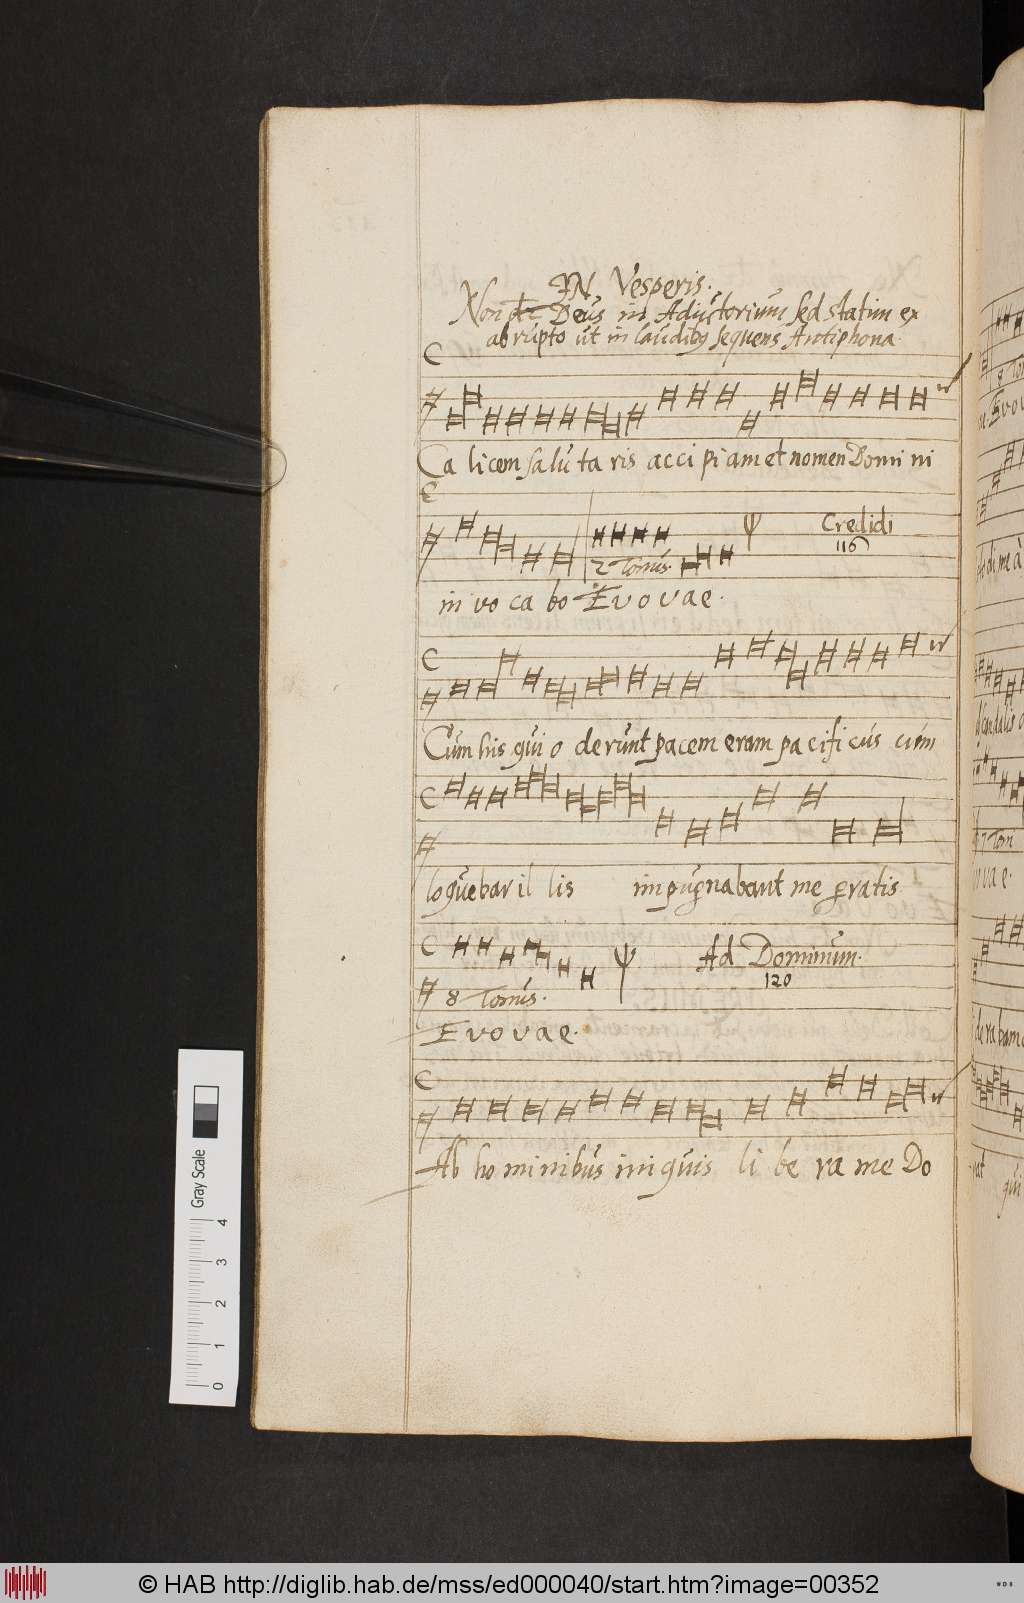 IN Vesperis.
Non Deus in Adiutorium sed statim ex
abrupto ut in laudibus sequens Antiphona.
Ca licem salu ta ris acci pi am et nomen Domi ni
Credidi
116
2 Tonus.
in vo ca bo Evovae.
Cum his qui o derunt pacem eram pa cifi cus cum
loquebar il lis impugnabant me gratis
Ad Dominum.
120
8 Tonus.
Evovae.
Ab ho mi nibus ini quis li be ra me Do
Gray Scale
0 1 2 3 4
© HAB http://diglib.hab.de/mss/ed000040/start.htm?image=00352